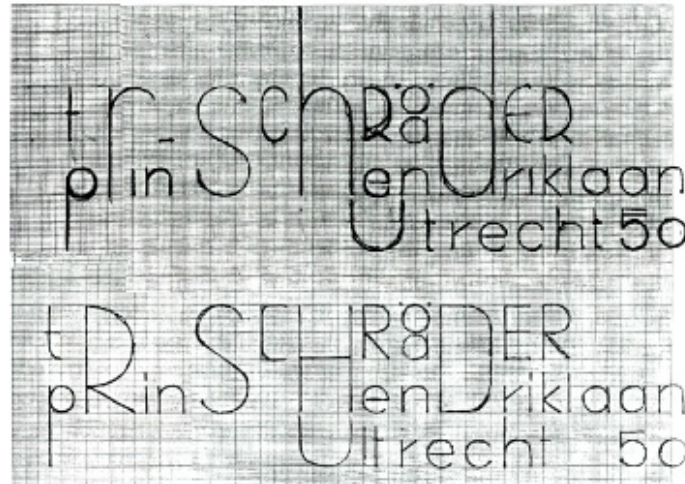 tr-ScHRöaDER
prinS HenDriklaan
Utrecht 50
tR SCHRöaDER
pRinS HenDriklaan
Utrecht 50